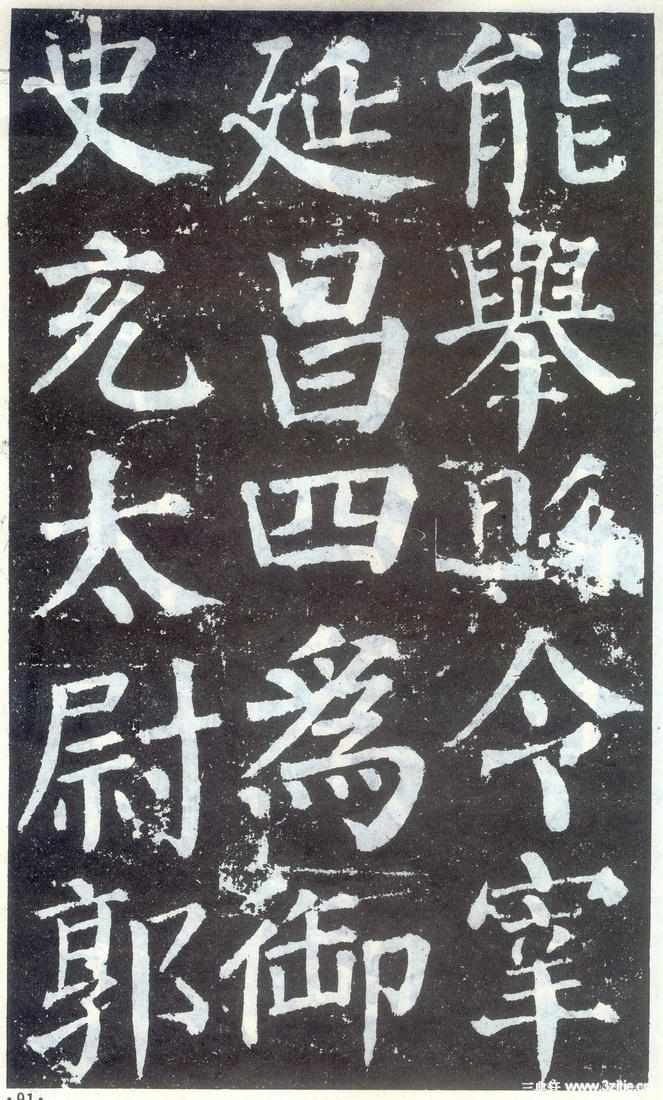 能舉縣令宰
延昌四為御
史充太尉郭
·91·
www.3zitie.c